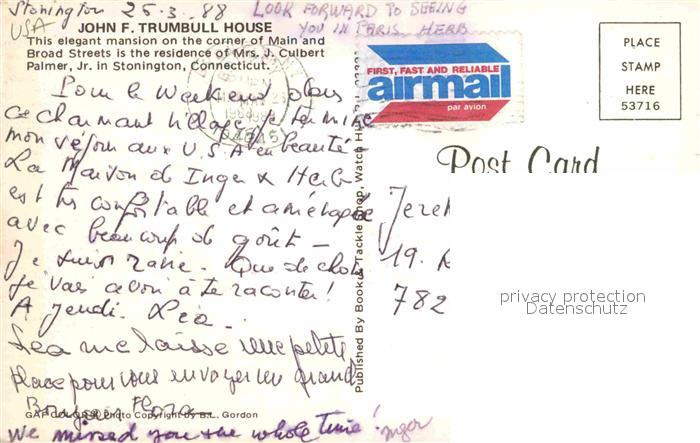 Stonington 25.3.88
USA
LOOK FORWARD TO SEEING
YOU IN PARIS HERB
JOHN F. TRUMBULL HOUSE
This elegant mansion on the corner of Main and
Broad Streets is the residence of Mrs. J. Culbert
Palmer, Jr. in Stonington, Connecticut.
Pour le week end dans
ce charmant village je termine
mon séjour aux U.S.A en beauté -
La Maison de Inge & Herb
est très confortable et aménagée
avec beaucoup de goût -
Je suis ravie. Que de choses
je vais avoir à te raconter!
A jeudi. Léa.
Léa me laisse une petite
place pour vous envoyer un grand
Bonjour Flora
GAF Photo Copyright by B.L. Gordon
We missed you the whole time! Inge
Published By Book & Tackle Shop, Watch Hill
FIRST, FAST AND RELIABLE
airmail
par avion
PLACE
STAMP
HERE
53716
Post Card
19.
782
privacy protection
Datenschutz